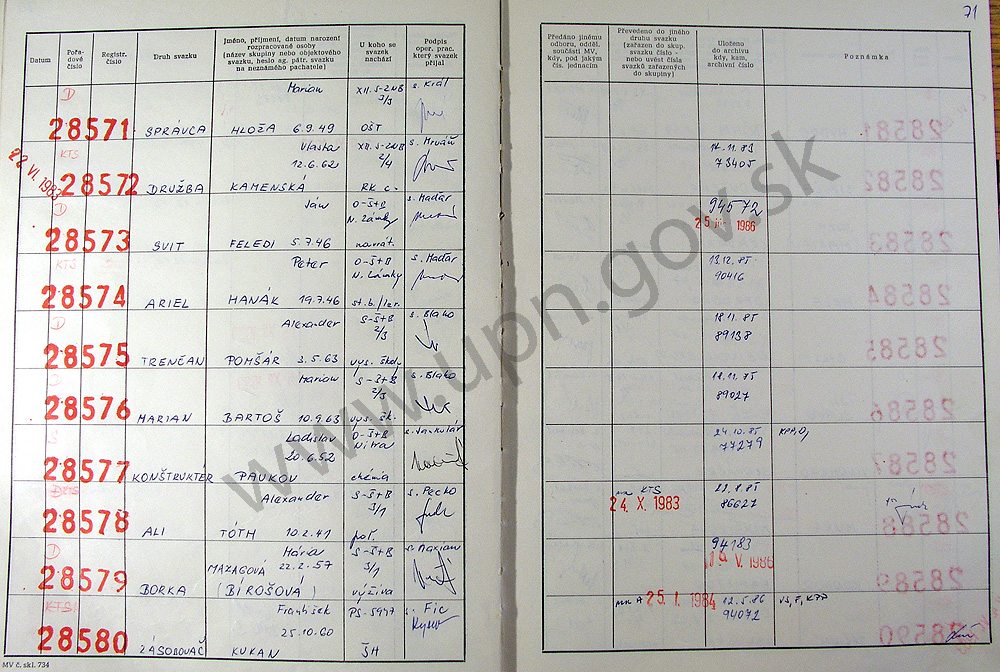 71
Datum
Pořadové číslo
Registr. číslo
Druh svazku
Jméno, příjmení, datum narození rozpracované osoby
(název skupiny nebo objektového svazku, heslo ag. pátr. svazku na neznámého pachatele)
U koho se svazek nachází
Podpis oper. prac. který svazek přijal
Předáno jinému odboru, odděl. součásti MV, kdy, pod jakým čís. jednacím
Převedeno do jiného druhu svazku (zařazen do skup. svazku číslo - nebo uvést čísla svazků zařazených do skupiny)
Uloženo do archivu kdy, kam, archivní číslo
Poznámka
D Marian XII. S-ZNB s. Král
2/3
28571 SPRÁVCA HLOŽA 6.9.49 OŠT
22 VI. 1983
KTS Vlasta XII. S-ZNB s. Mrváň
12.6.62 2/4
28572 DRUŽBA KAMENSKÁ RK c.
14.11.83
73405
D Ján O-ŠtB s. Maďar
N. Zámky
28573 SVIT FELEDI 5.7.46 navrát.
94572
1986
KTS Peter O-ŠtB s. Maďar
N. Zámky
28574 ARIEL HANÁK 19.7.46 st.b./ter.
13.12.85
90416
D Alexander S-ŠtB s. Blaho
2/3
28575 TRENČAN POMŠÁR 3.5.63 vys. školy
18.11.85
89138
D Marian S-ŠtB s. Blaho
2/3
28576 MARIAN BARTOŠ 10.9.63 vys. šk.
89027
D Ladislav O-ŠtB s. Jankulár
20.6.52 Nitra
28577 KONŠTRUKTÉR PAVKOV chémia
24.10.85
77279
Alexander S-ŠtB s. Pecho
3/1
28578 ALI TÓTH 10.2.41 pot.
na KTS
24. X. 1983
86627
D Mária S-ŠtB s. Maxian
MAZAGOVÁ 22.2.57 3/1
28579 BORKA (BÍROŠOVÁ) výživa
94183
V. 1986
KTS František PS-5947 s. Fic
25.10.60
28580 ZÁSOBOVAČ KUKAN ŠH
na A 25. I. 1984 12.5.86
94072
MV č. skl. 734
www.upn.gov.sk